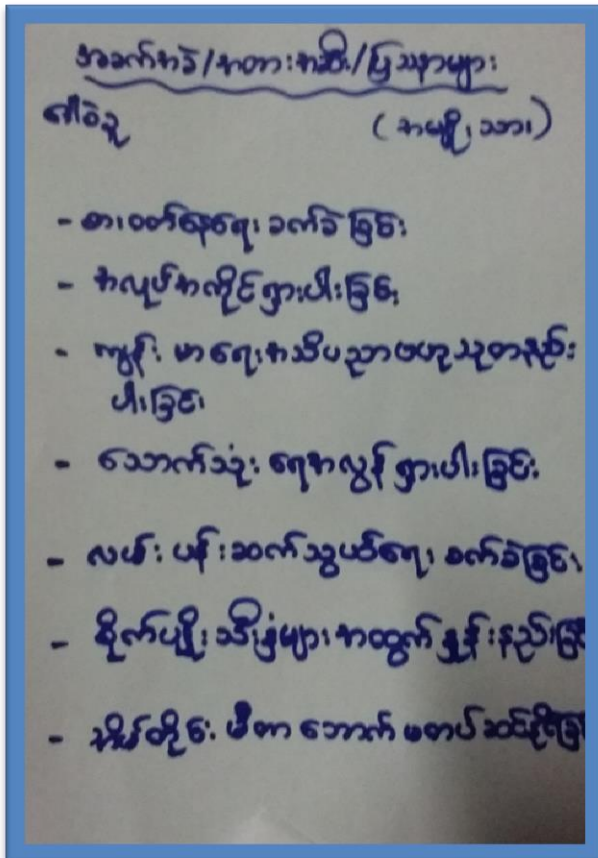 အခက်အခဲ/အတားအဆီး/ပြဿနာများ
ဒေါဝဲသူ (အမျိုးသား)
- စားဝတ်နေရေး ခက်ခဲခြင်း
- အလုပ်အကိုင်ရှားပါးခြင်း
- ကျန်းမာရေးအသိပညာဗဟုသုတနည်း
ပါးခြင်း
- သောက်သုံးရေအလွန်ရှားပါးခြင်း
- လမ်းပန်းဆက်သွယ်ရေး ခက်ခဲခြင်း
- စိုက်ပျိုးသီးနှံများအထွက်နှုန်းနည်းခြင်
- အိမ်တိုင်း မီတာ ဘောက် မတပ်ဆင်နိုင်ခြ